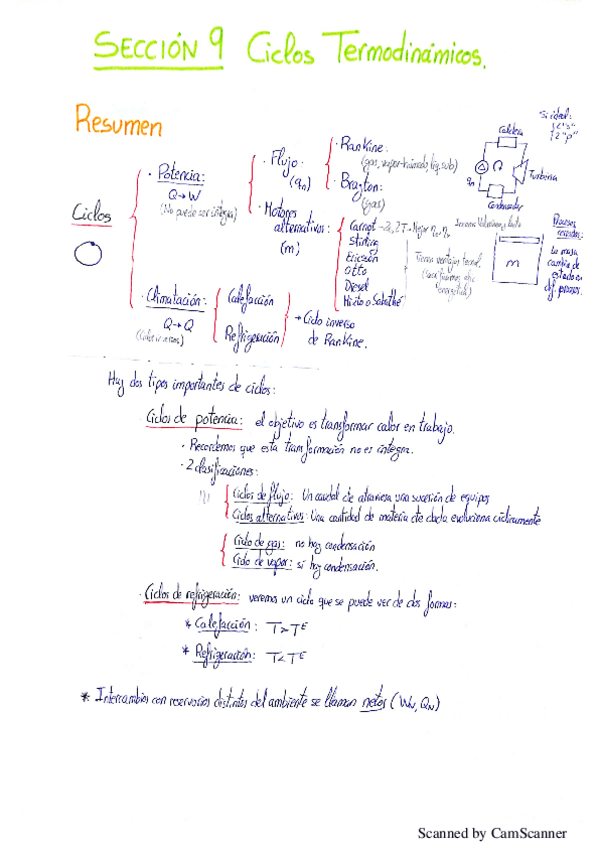 SECCIÓN 9 Ciclos Termodinámicos.
Resumen
Ciclos
· Potencia:
Q→W
(No puede ser íntegra)
· Flujo:
(qn)
· Rankine:
· Brayton:
(gas)
· Motores
alternativos:
(m)
Carnot
Stirling
Ericsson
Otto
Diesel
Mixto o Sabathé
· Climatación:
Q→Q
Calefacción
Refrigeración
→ Ciclo inverso
de Rankine.
Si ideal:
Caldera
Turbina
Condensador
m
Procesos
cerrados:
La masa
cambia de
estado en
dif. procesos.
Hay dos tipos importantes de ciclos:
Ciclos de potencia: el objetivo es transformar calor en trabajo.
· Recordemos que esta transformación no es íntegra.
· 2 clasificaciones:
Ciclos de flujo: Un caudal de atraviesa una sucesión de equipos
Ciclos alternativos: Una cantidad de materia dada evoluciona cíclicamente
Ciclo de gas: no hay condensación
Ciclo de vapor: sí hay condensación.
· Ciclos de refrigeración: veremos un ciclo que se puede ver de dos formas:
* Calefacción: T>T^E
* Refrigeración: T<T^E
* Intercambios con reservorios distintos del ambiente se llaman netos (WN, QN)
Scanned by CamScanner